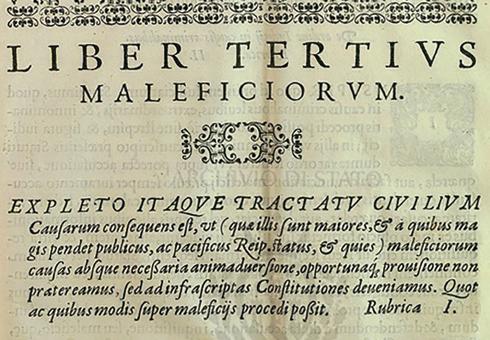 LIBER TERTIVS
MALEFICIORVM.
ARCHIVIO DI STATO
EXPLETO ITAQVE TRACTATV CIVILIVM
Causarum consequens est, vt (quæ illis sunt maiores, & à quibus ma
gis pendet publicus, ac pacificus Reip. status, & quies) maleficiorum
causas absque necessaria animaduersione, opportunaq́; prouisione non
prætereamus, sed ad infrascriptas Constitutiones deueniamus. Quot
ac quibus modis super maleficijs procedi possit. Rubrica I.